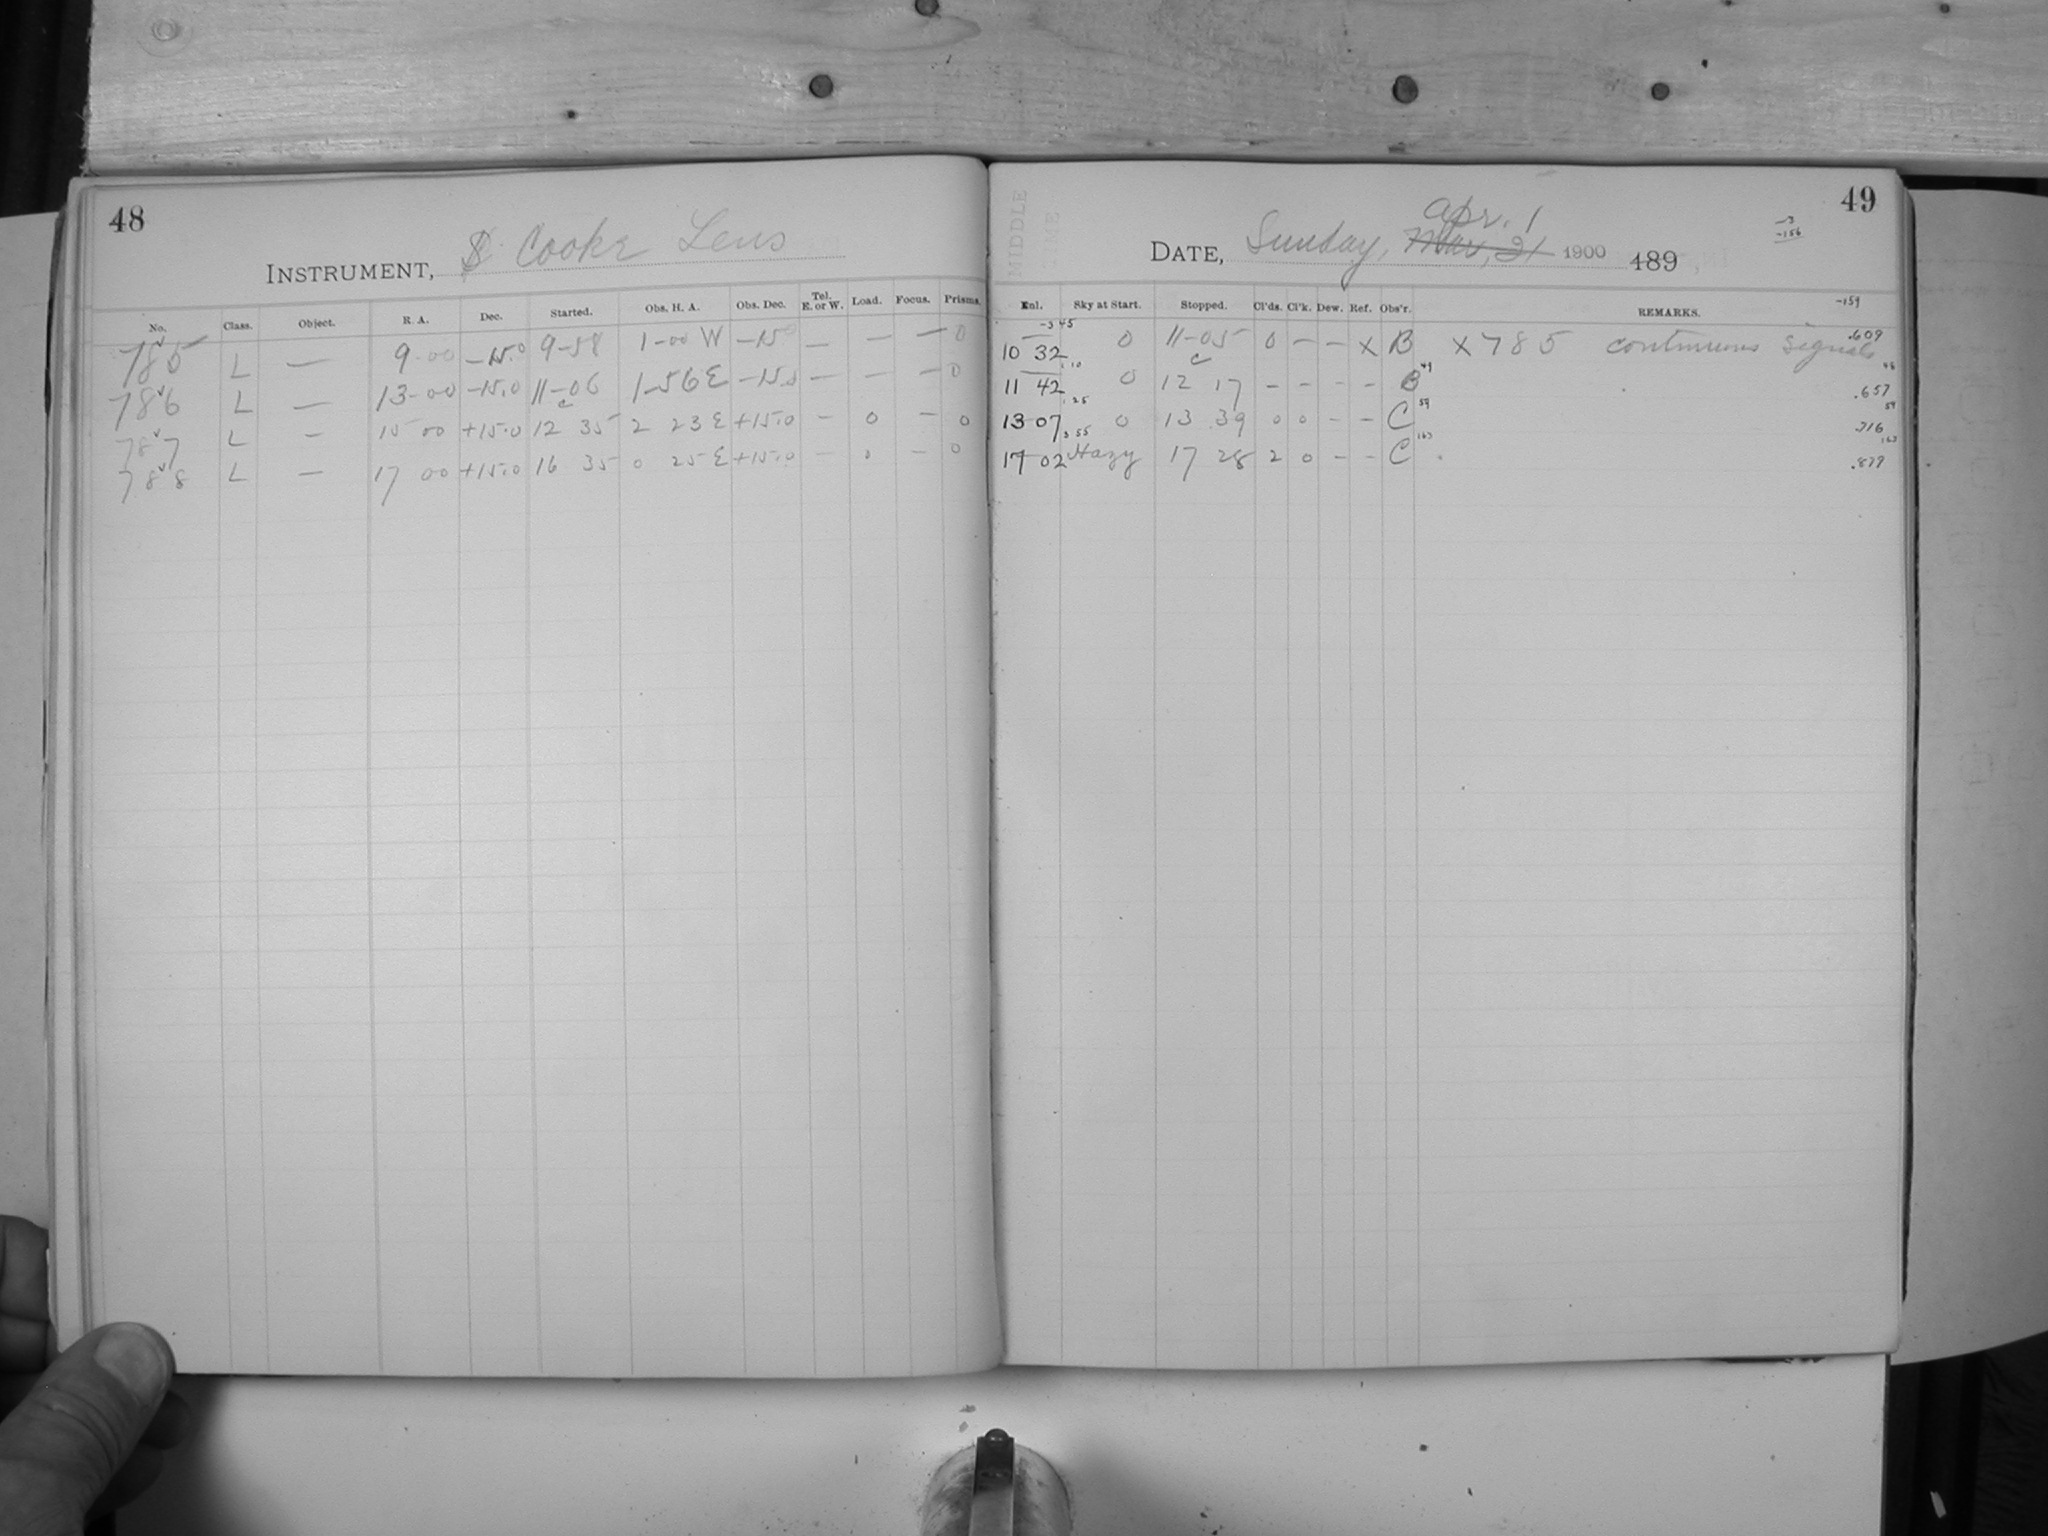 48
INSTRUMENT, $ Cooke Lens
No. Class. Object. R. A. Dec. Started. Obs. H. A. Obs. Dec. Tel. E. or W. Load. Focus. Prisms.
785 L — 9-00 -15.0 9-58 1-00 W -15.0 — — — 0
786 L — 13-00 -15.0 11-06 1-56 E -15.0 — — — 0
787 L — 15 00 +15.0 12 35 2 23 E +15.0 - 0 - 0
788 L — 17 00 +15.0 16 35 0 25 E +15.0 - 0 - 0
49
MIDDLE TIME
Apr. 1
DATE, Sunday, Mar, 31 1900 189
-3
-156
-159
Exl. Sky at Start. Stopped. Cl'ds. Cl'k. Dew. Ref. Obs'r. REMARKS.
-3 45
10 32 0 11-05 0 — — X B X 785 continuous signals .609
11 42 0 12 17 - - - - B .657
13 07 0 13 39 0 0 - - C .716
17 02 Hazy 17 28 2 0 - - C .879